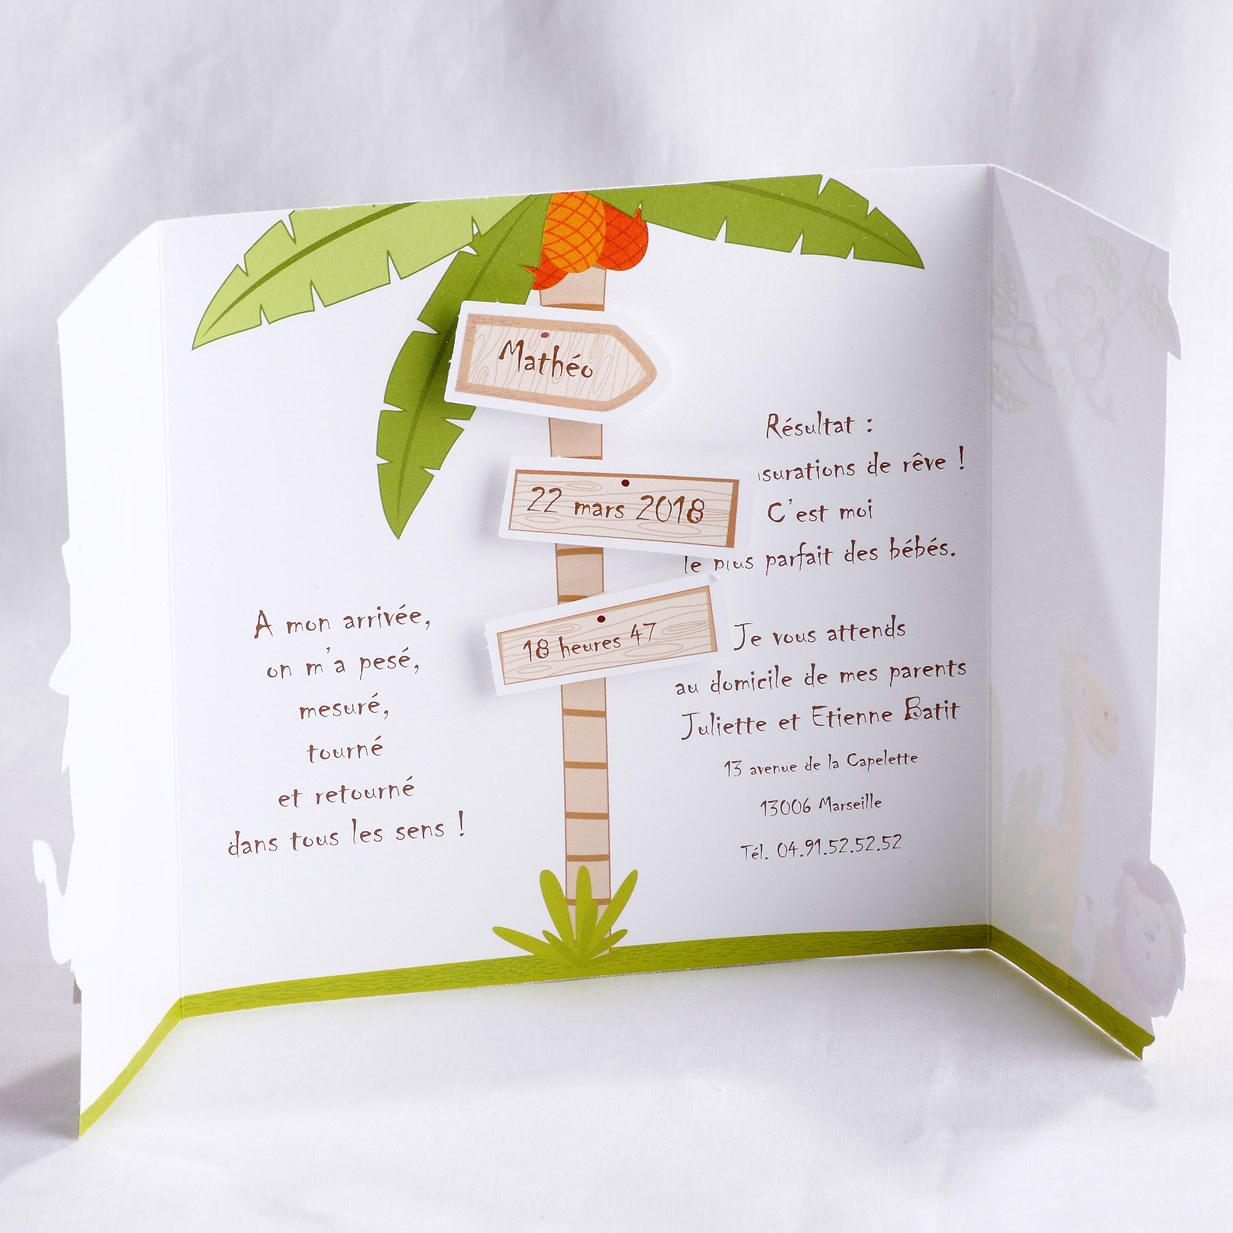 Mathéo
22 mars 2018
18 heures 47
A mon arrivée,
on m'a pesé,
mesuré,
tourné
et retourné
dans tous les sens !
Résultat :
de rêve !
C'est moi
le plus parfait des bébés.
Je vous attends
au domicile de mes parents
Juliette et Etienne Batit
13 avenue de la Capelette
13006 Marseille
Tél. 04.91.52.52.52